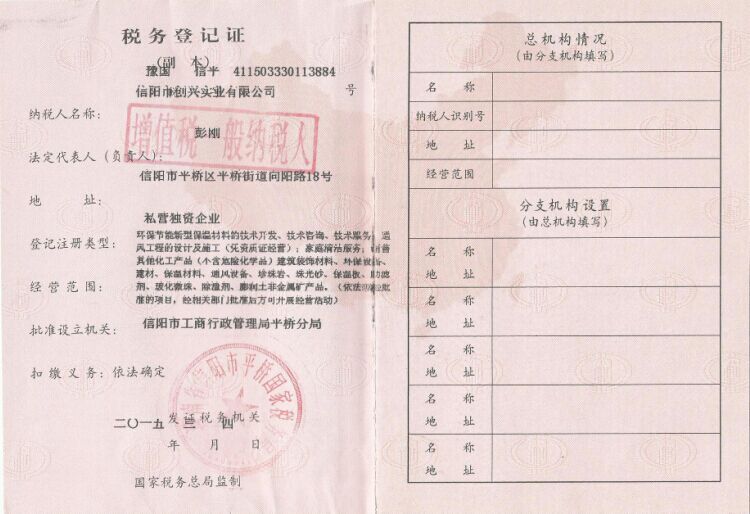 税务登记证
(副 本)
豫国 信平 411503330113884 号
信阳市创兴实业有限公司
纳税人名称:
增值税一般纳税人
彭刚
法定代表人(负责人):
信阳市平桥区平桥街道向阳路18号
地 址:
私营独资企业
登记注册类型:
环保节能新型保温材料的技术开发、技术咨询、技术服务;通
风工程的设计及施工(凭资质证经营);家庭清洁服务;销售
其他化工产品(不含危险化学品)建筑装饰材料、环保设备、
建材、保温材料、通风设备、珍珠岩、珠光砂、保温板、助滤
剂、玻化微珠、除渣剂、膨润土非金属矿产品。(依法须经批
准的项目,经相关部门批准后方可开展经营活动)
经营范围:
信阳市工商行政管理局平桥分局
批准设立机关:
扣缴义务:依法确定
信阳市平桥国家税务
发证税务机关
二〇一五 三 四
年 月 日
国家税务总局监制
总机构情况
(由分支机构填写)
名 称
纳税人识别号
地 址
经营范围
分支机构设置
(由总机构填写)
名 称
地 址
名 称
地 址
名 称
地 址
名 称
地 址
名 称
地 址